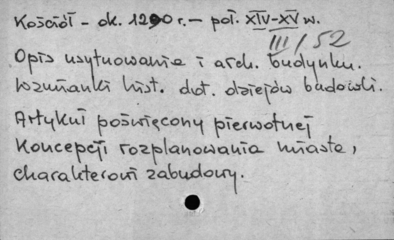 Kościół - ok. 1290 r. - poł. XIV-XV w.
III/52
Opis usytuowania i arch. budynku.
Wzmianki hist. dot. dziejów budowli.
Artykuł poświęcony pierwotnej
koncepcji rozplanowania miasta,
charakterowi zabudowy.